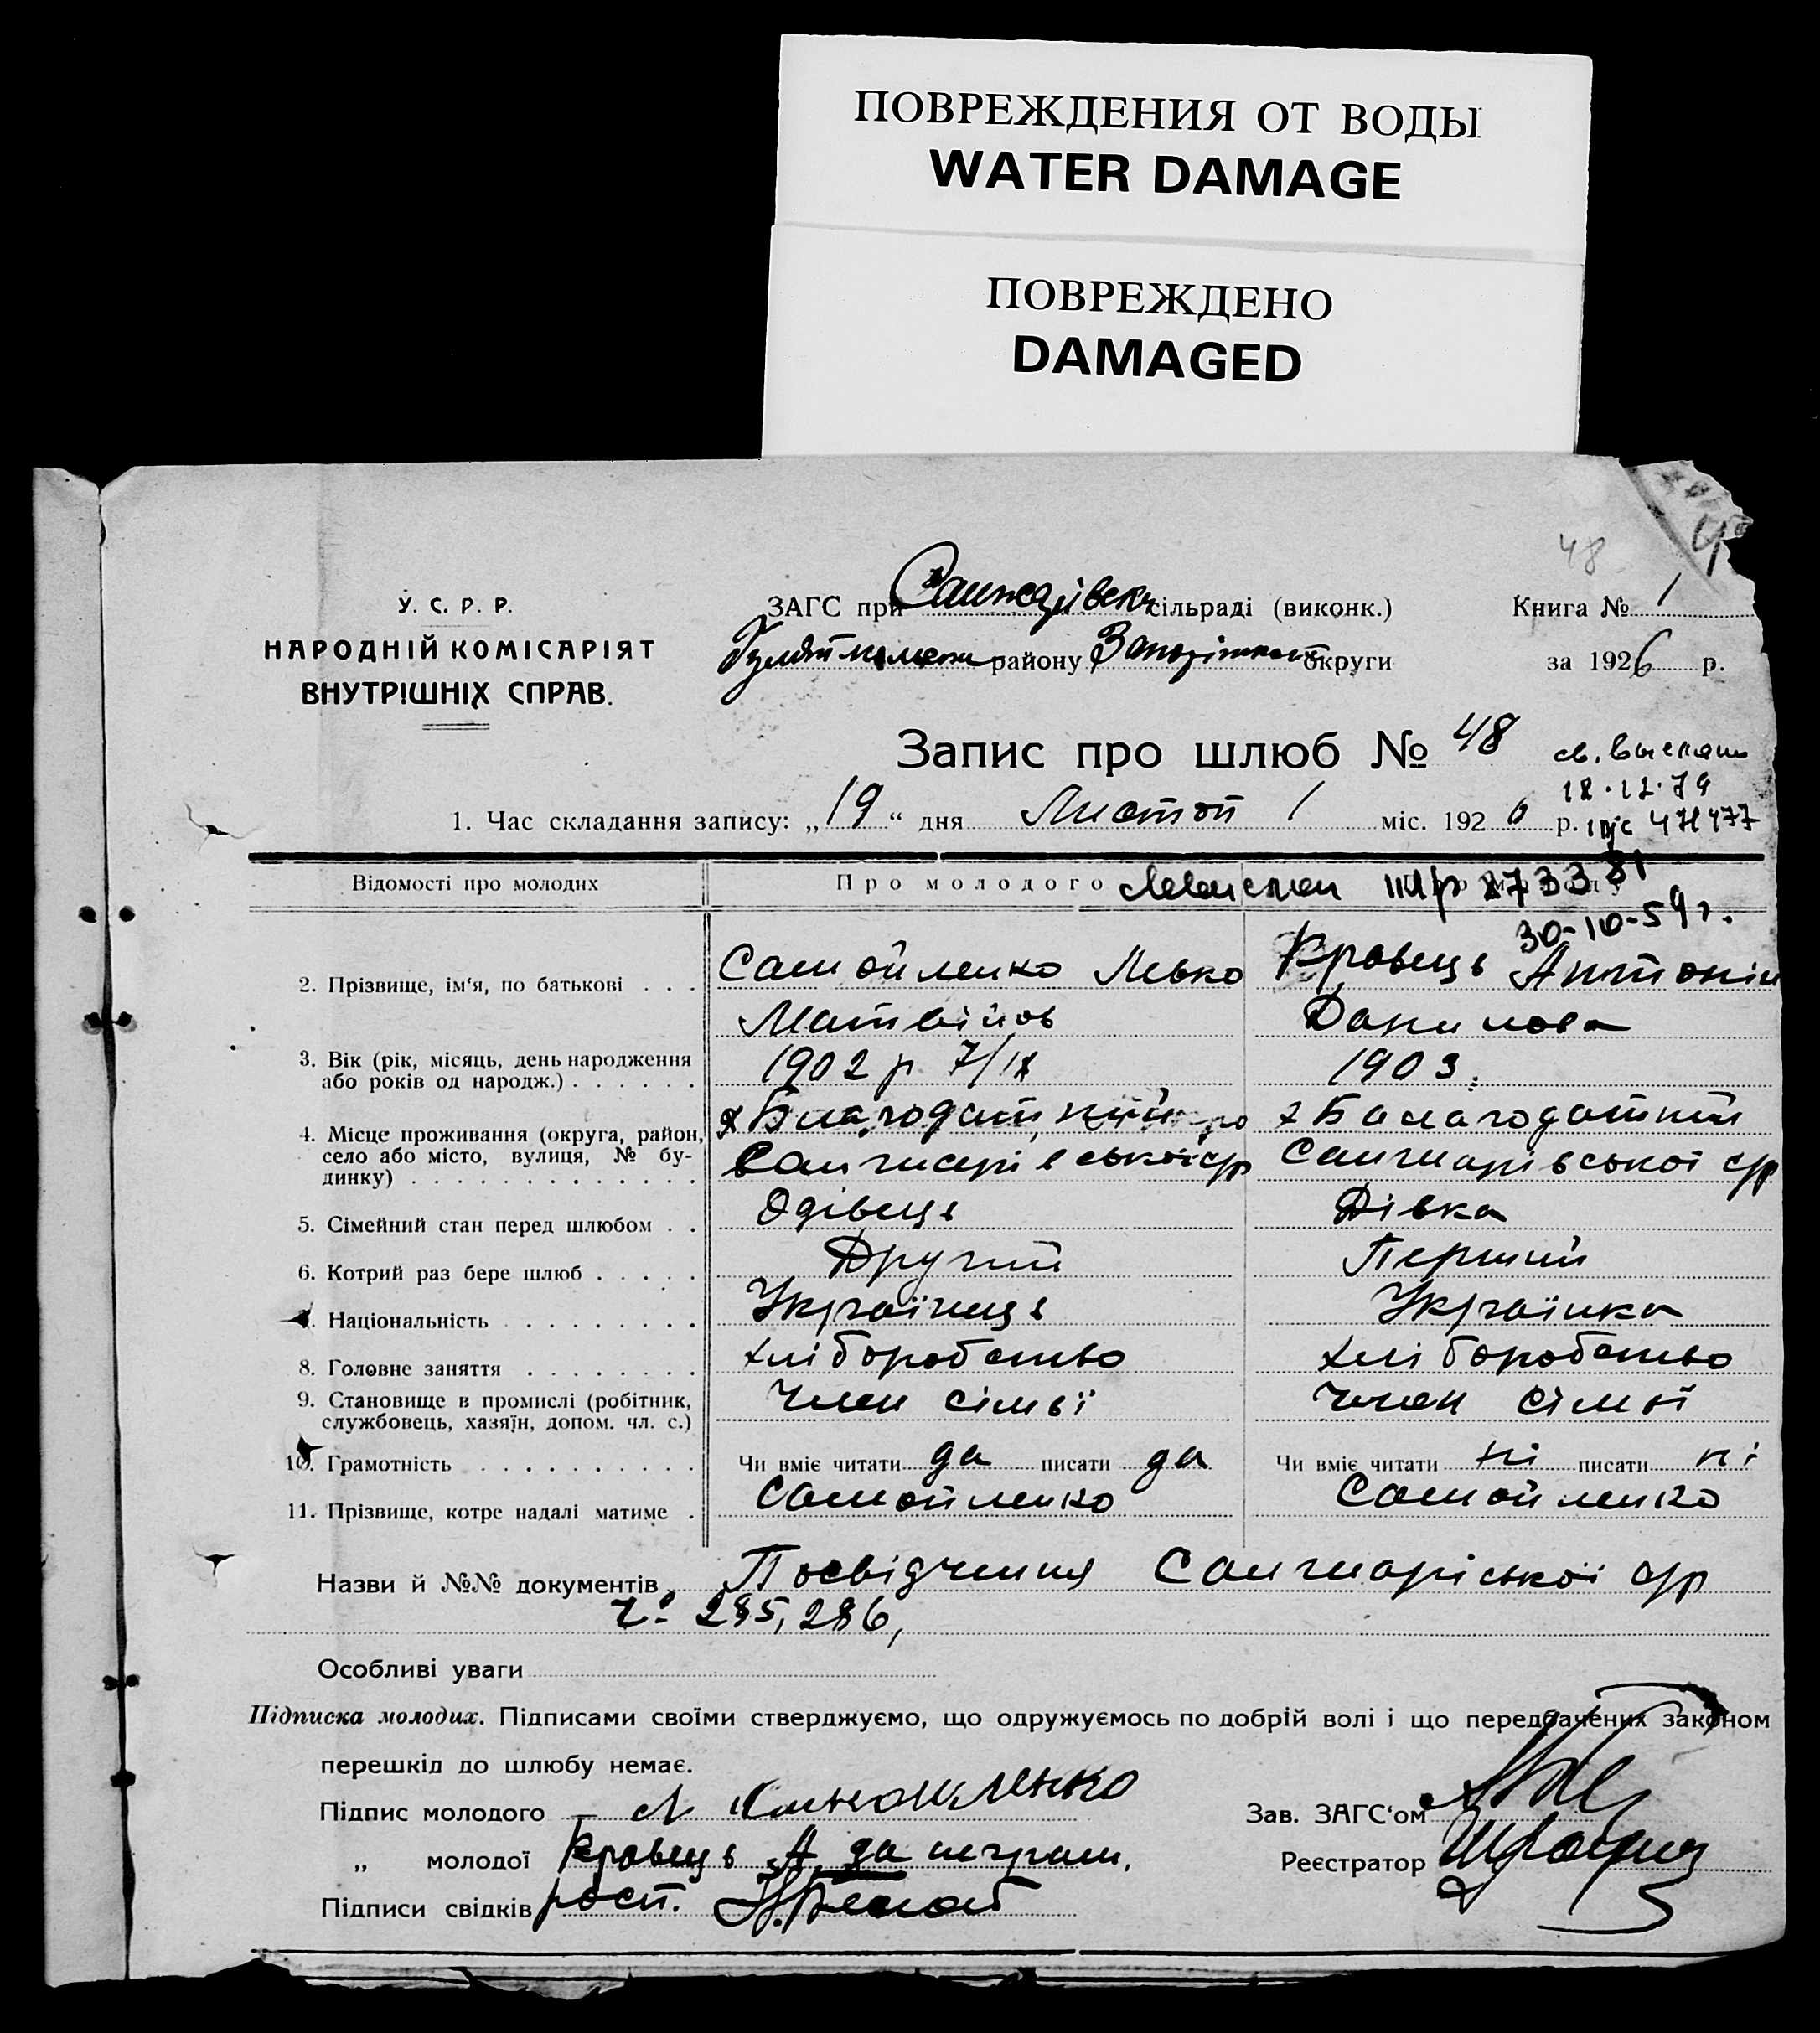 ПОВРЕЖДЕНИЯ ОТ ВОДЫ
WATER DAMAGE
ПОВРЕЖДЕНО
DAMAGED
48
У. С. Р. Р.
НАРОДНІЙ КОМІСАРІЯТ
ВНУТРІШНІХ СПРАВ.
ЗАГС при сільраді (виконк.)
району округи
Книга № 1
за 1926 р.
Запис про шлюб № 48
1. Час складання запису: „19“ дня Листоп міс. 1926 р.
18.12.79
Відомості про молодих
Про молодого
30-10-54 г.
2. Прізвище, ім‘я, по батькові . . . Самойленко Левко Кравець Антонін
Матвійов Данилова
3. Вік (рік, місяць, день народження
або років од народж.) . . . . . . 1902 р 7/IX 1903
4. Місце проживання (округа, район,
село або місто, вулиця, № бу-
динку) . . . . . . . . . . . . .
5. Сімейний стан перед шлюбом . . Одівець Дівка
6. Котрий раз бере шлюб . . . . . Другий Перший
7. Національність . . . . . . . . . Українець Українка
8. Головне заняття . . . . . . . . хліборобство хліборобство
9. Становище в промислі (робітник,
службовець, хазяїн, допом. чл. с.) Член сімьї член сімьї
10. Грамотність . . . . . . . . . . . Чи вміє читати да писати да Чи вміє читати ні писати ні
11. Прізвище, котре надалі матиме . Самойленко Самойленко
Назви й №№ документів Посвідчення ср
285, 286,
Особливі уваги
Підписка молодих. Підписами своїми стверджуємо, що одружуємось по добрій волі і що передбачених законом
перешкід до шлюбу немає.
Підпис молодого – Л Самойленко
Зав. ЗАГС‘ом
„ молодої Кравець А. да неграм.
Реєстратор
Підписи свідків расп.